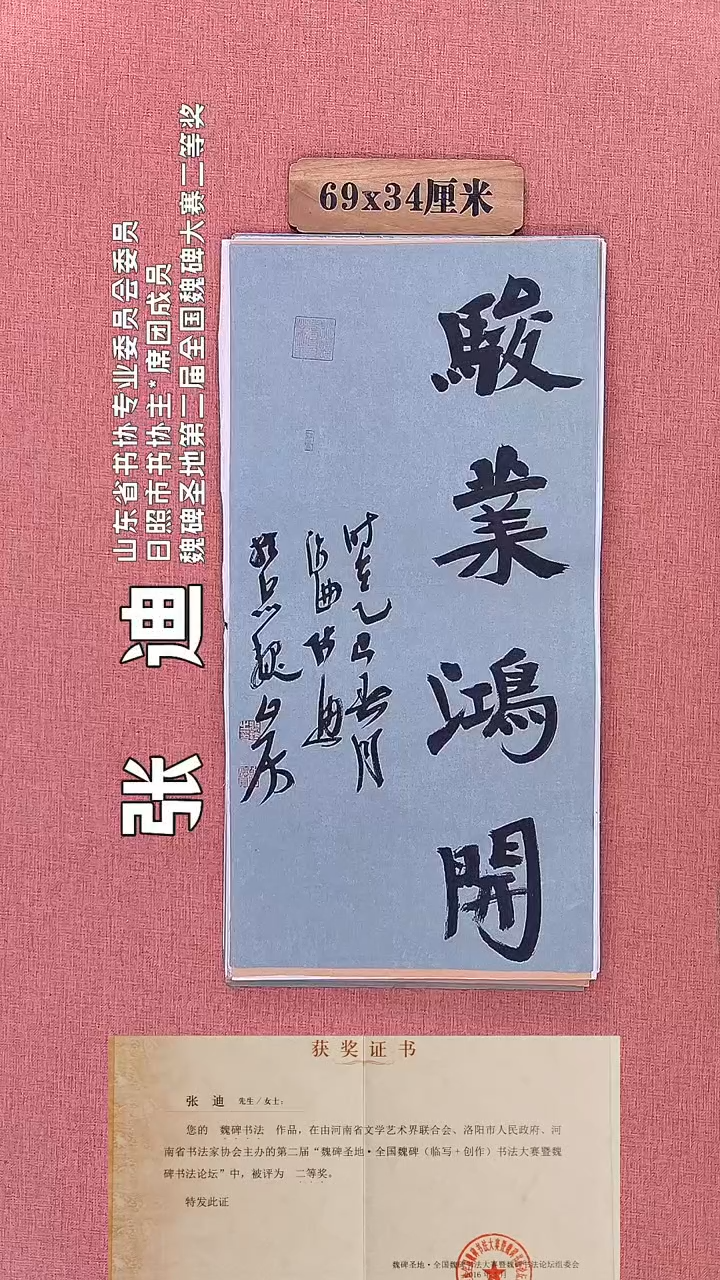 69x34厘米
駿業鴻開
时在乙巳春月
张迪
山东省书协专业委员会委员
日照市书协主*席团成员
魏碑圣地第二届全国魏碑大赛二等奖
张 迪
获奖证书
张 迪 先生/女士:
您的 魏碑书法 作品，在由河南省文学艺术界联合会、洛阳市人民政府、河
南省书法家协会主办的第二届“魏碑圣地·全国魏碑（临写+创作）书法大赛暨魏
碑书法论坛”中，被评为 二等奖。
特发此证
魏碑圣地·全国魏碑书法大赛暨魏碑书法论坛组委会